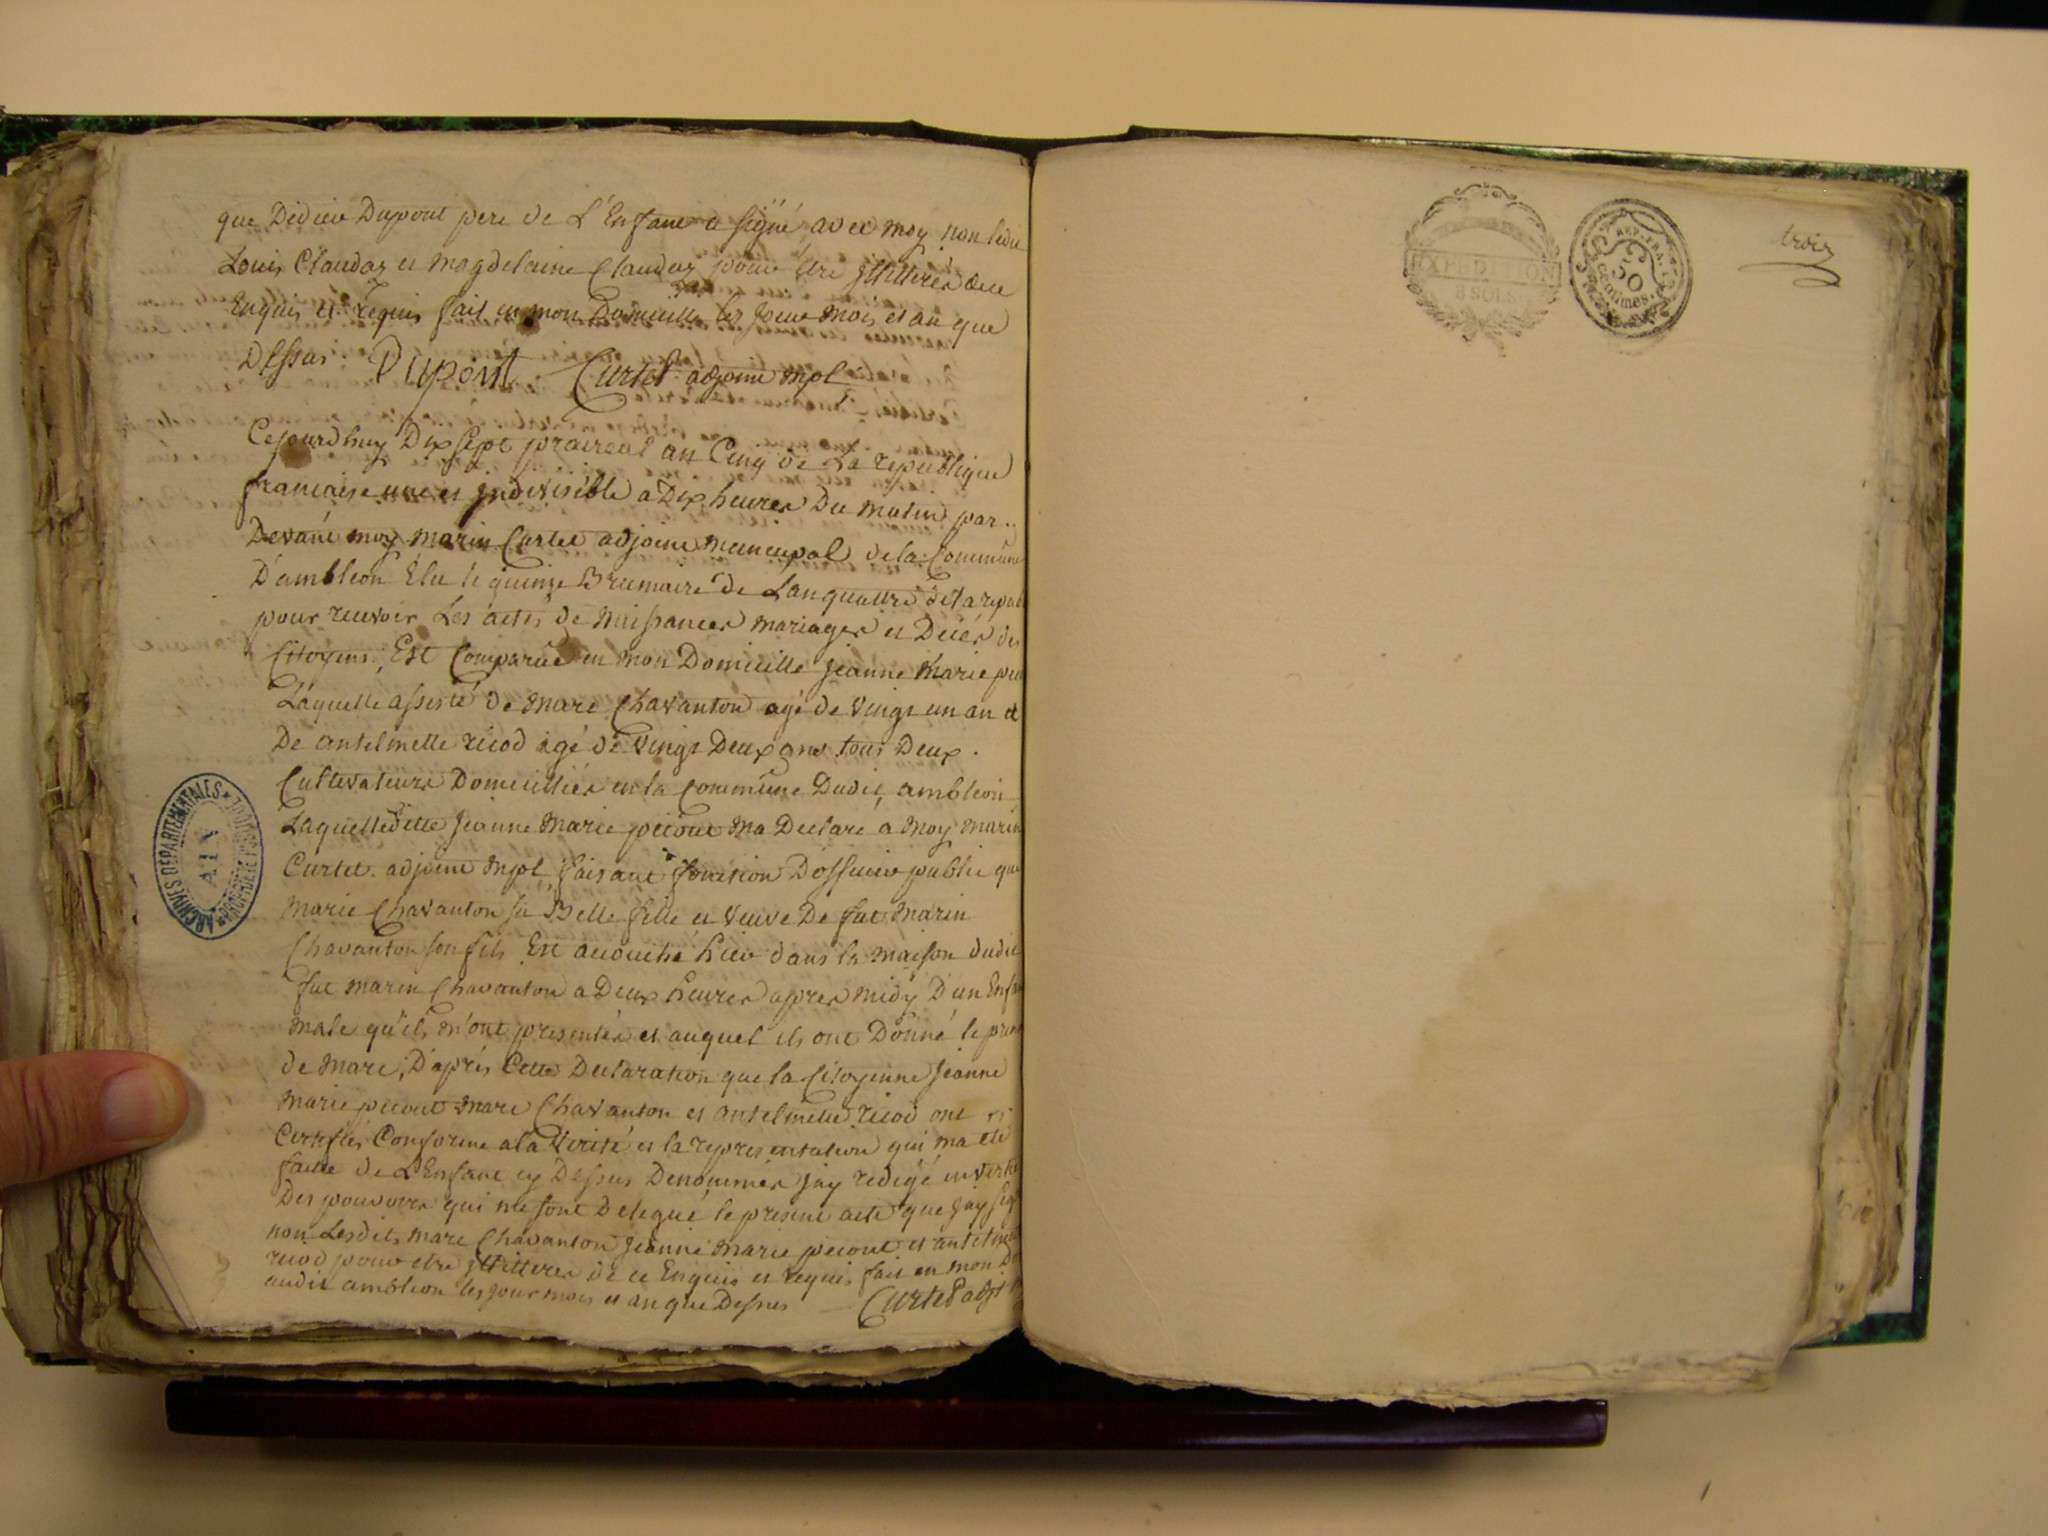 que Didier Dupont pere de L'Enfant a signé avec moy non ledit
Louis Claudas et Magdelaine Claudas pour être jllitérés de ce
Enquis et requis fait en mon Domicille les jour mois et an que
Dessus Dupont Curtet adjoint mpl
Cejourdhuy Dix sept praireal an Cinq de La republique
francaise une et jndivisible a Dix heures Du matin par
Devant moy Marin Curtet adjoint municipal de la Commune
D'ambleon Elu le quinze Brumaire de Lan quattre de la repub
pour recevoir Les actes de Naissances mariages et Décés des
Citoyens, Est Comparüe en mon Domicille Jeanne Marie
Laquelle assisté de Marc Chavanton agé de vingt un an et
De antelmelle ricod agé de vingt Deux ans tous Deux
Cultivateurs Domicilliés en la Commune Dudit ambleon
Laquelle ditte Jeanne Marie picout Ma Declare a Moy Marin
Curtet adjoint mpl faisant fonction D'officier public que
Marie Chavanton sa Belle fille et veuve De fut Marin
Chavanton son fils Est accouché hier dans la maison dudit
fut Marin Chavanton a Deux heures apres midy D'un Enfant
Male qu'ils m'ont presentés et auquel ils ont Donné le
de Marc, D'aprés Cette Declaration que la Citoyenne Jeanne
Marie picout Marc Chavanton et antelmelle ricod ont
Certifiés Conforme a la Verité et la representation qui ma eté
faitte de L'Enfant cy Dessus Denommés jay redigé en vertu
Des pouvoirs qui me sont Delegué le present acte que jay
non Lesdits Marc Chavanton Jeanne Marie picout et
ricod pour etre jllitteres de ce Enquis et requis fait en mon
audit ambleon les jour mois et an que Dessus Curtet adjt
ARCHIVES DÉPARTEMENTALES
AIN
EXPEDITION
8 SOLS
REP. FRA.
50
centimes
trois